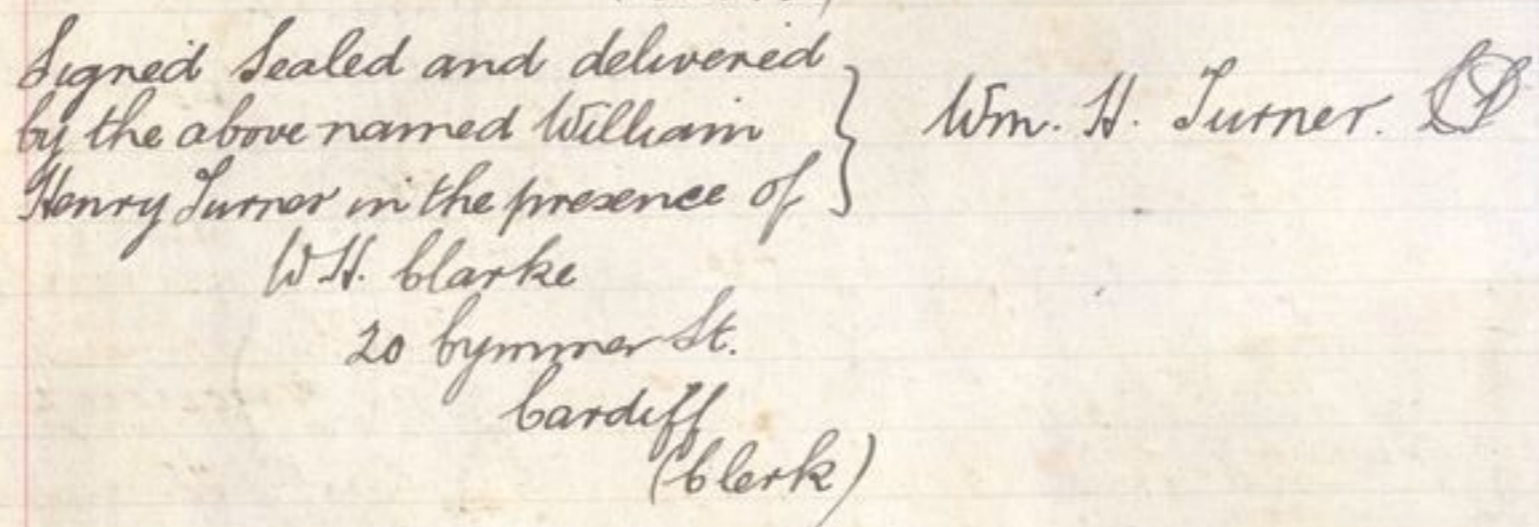 Signed Sealed and delivered
by the above named William
Henry Turner in the presence of
Wm. H. Turner.
W H. Clarke
20 Cymmer St.
Cardiff
(Clerk)